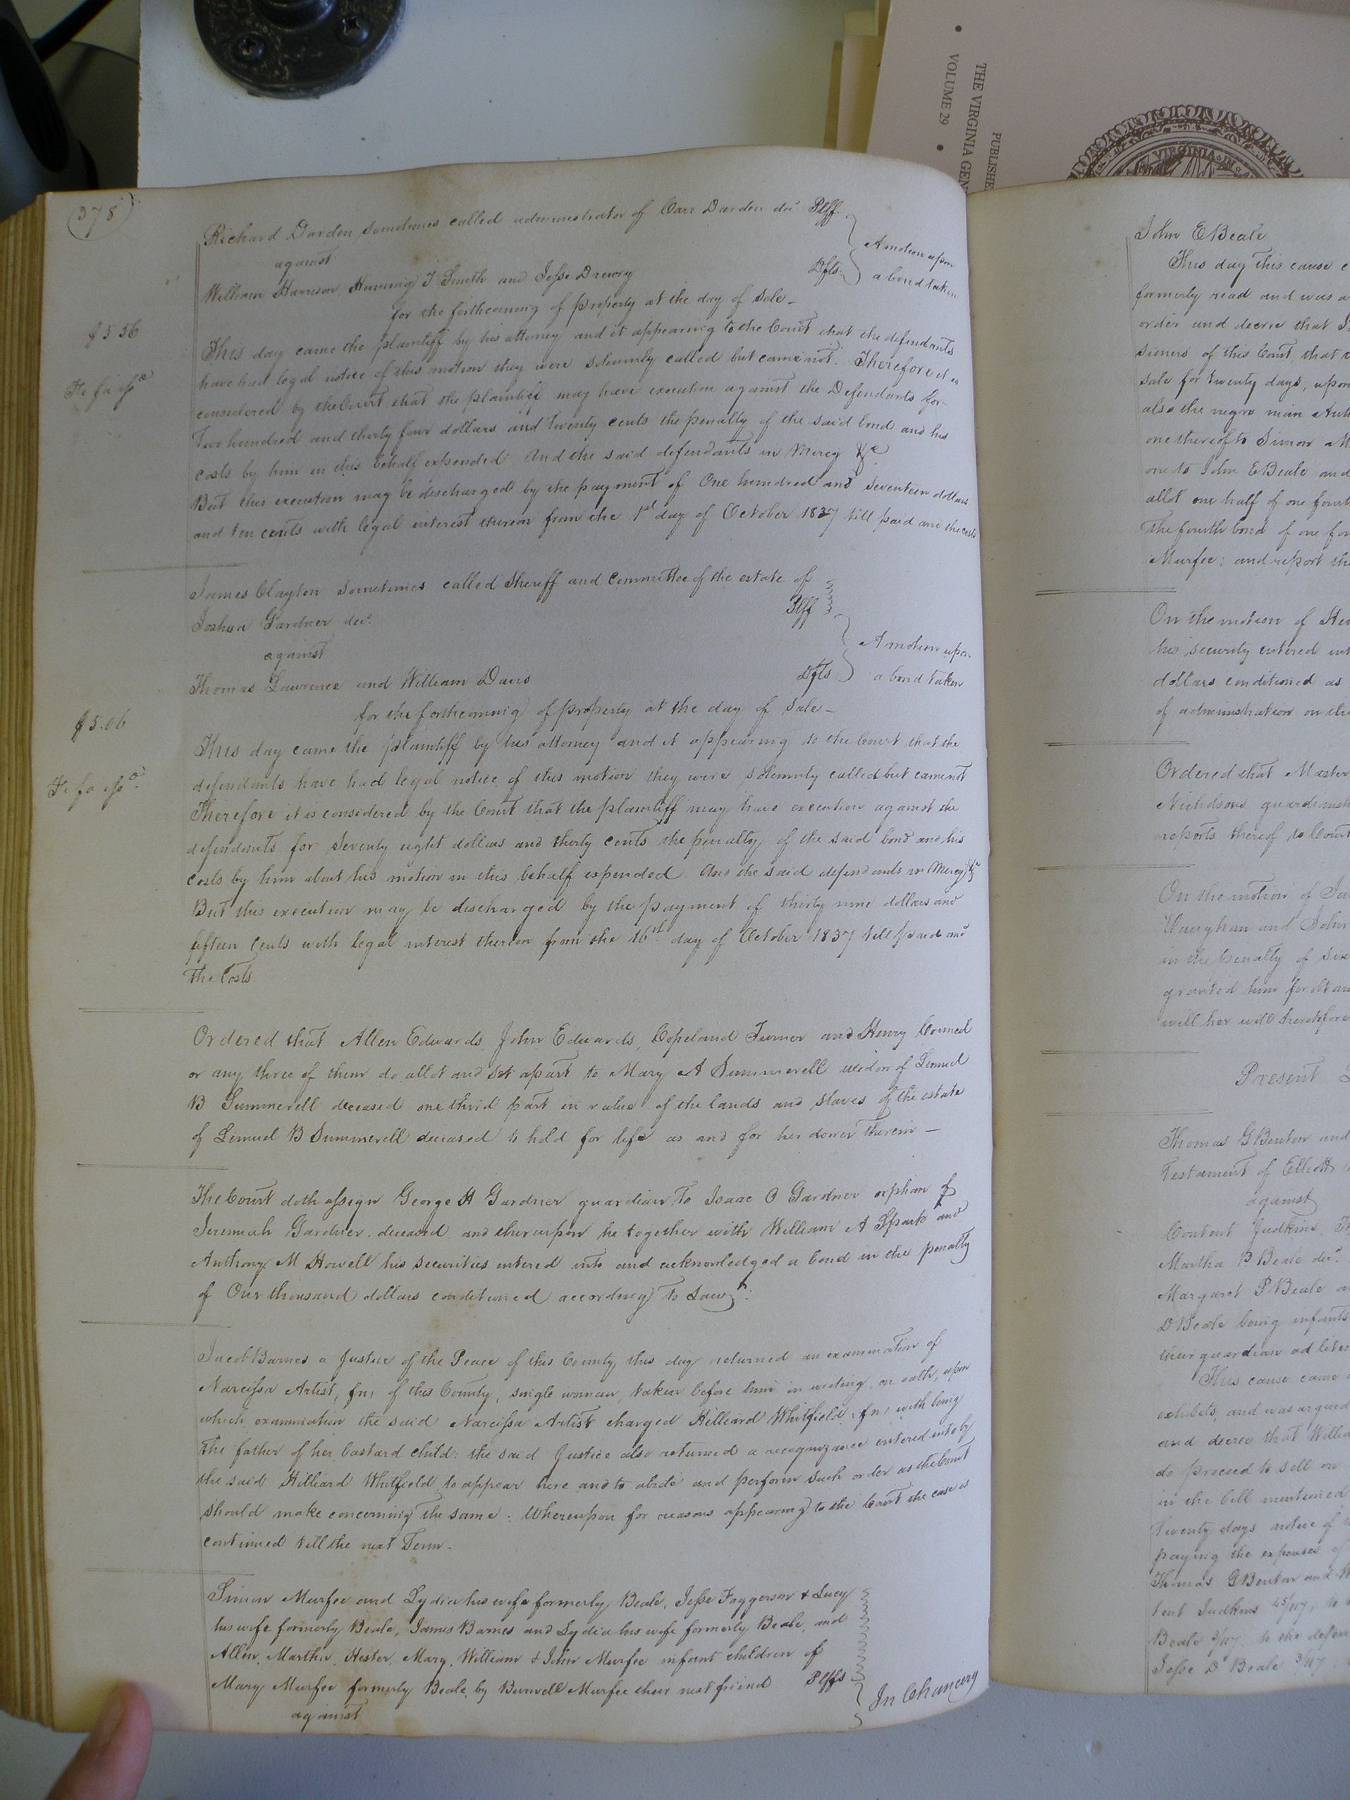 THE VIRGINIA GEN
VOLUME 29
PUBLISHE
VIRGINIA IN
(378)
Richard Darden sometimes called administrator of Carr Darden decd Plff
against
William Harrison, T Smith and Jesse Drewry Dfts
A motion upon
a bond taken
for the forthcoming of property at the day of sale -
$5 56
This day came the plaintiff by his attorney and it appearing to the Court that the defendants
have had legal notice of this motion they were solemnly called but came not. Therefore it is
considered by the Court that the plaintiff may have execution against the Defendants for
Two hundred and thirty four dollars and twenty cents the penalty of the said bond and his
costs by him in this behalf expended And the said defendants in Mercy &c
But this execution may be discharged by the payment of One hundred and seventeen dollars
and ten cents with legal interest thereon from the 1st day of October 1837 till paid and the costs
James Clayton sometimes called Sheriff and Committee of the estate of
Joshua Gardner decd. Plff
against
Thomas Lawrence and William Davis Dfts
A motion upon
a bond taken
for the forthcoming of property at the day of sale -
$5.06
This day came the plaintiff by his attorney and it appearing to the Court that the
defendants have had legal notice of this motion they were solemnly called but came not
Therefore it is considered by the Court that the plaintiff may have execution against the
defendants for Seventy eight dollars and thirty cents the penalty of the said bond and his
costs by him about his motion in this behalf expended And the said defendants in Mercy &c
But this execution may be discharged by the payment of thirty nine dollars and
fifteen cents with legal interest thereon from the 16th day of October 1837 till paid and
the Costs
Ordered that Allen Edwards, John Edwards, Copeland Turner and Henry
or any three of them do allot and set apart to Mary A Summerell widow of Lemuel
B Summerell deceased one third part in value of the lands and slaves of the estate
of Lemuel B Summerell deceased to hold for life as and for her dower therein -
The Court doth assign George H Gardner guardian to Isaac O Gardner orphan of
Jeremiah Gardner, deceased and thereupon he together with William A Spark and
Anthony M Howell his securities entered into and acknowledged a bond in the penalty
of One thousand dollars conditioned according to Law
Jacob Barnes a Justice of the Peace of this County this day returned an examination of
Narcissa Artist, fn, of this County, single woman, taken before him in writing, on oath, upon
which examination the said Narcissa Artist charged Hilliard Whitfield, fn, with being
the father of her bastard child: the said Justice also returned a recognizance entered into by
the said Hilliard Whitfield to appear here and to abide and perform such order as the Court
should make concerning the same: Whereupon for reasons appearing to the Court the case is
continued till the next Term -
Simon Murfee and Lydia his wife formerly Beale, Jesse Faggerson & Lucy
his wife formerly Beale, James Barnes and Lydia his wife formerly Beale, and
Allen, Martha, Hester, Mary, William & John Murfee infant children of
Mary Murfee formerly Beale, by Burwell Murfee their next friend Plffs
against
In Chancery
John E Beale
This day this cause
formerly read and was
order and decree that
sioners of this Court that
sale for twenty days, upon
also the negro man
one thereof to Simon
one to John E Beale and
allot one half of one fourth
the fourth bond of one
Murfee; and report
On the motion of
his security entered
dollars conditioned as
of administration on
Ordered that
Nicholson guardian
reports thereof to Court
On the motion of
Vaughan and John
in the penalty of
granted him for
will her
Present
Thomas G Benton and
Testament of
against
Judkins
Martha B Beale decd.
Margaret P Beale
D Beale being infants
their guardian ad
This cause came
exhibits, and was argued
and decree that
do proceed to sell
in the bill mentioned
twenty days notice of
paying the expenses of
Thomas G Benton and
Judkins
Beale to the
Jesse D Beale